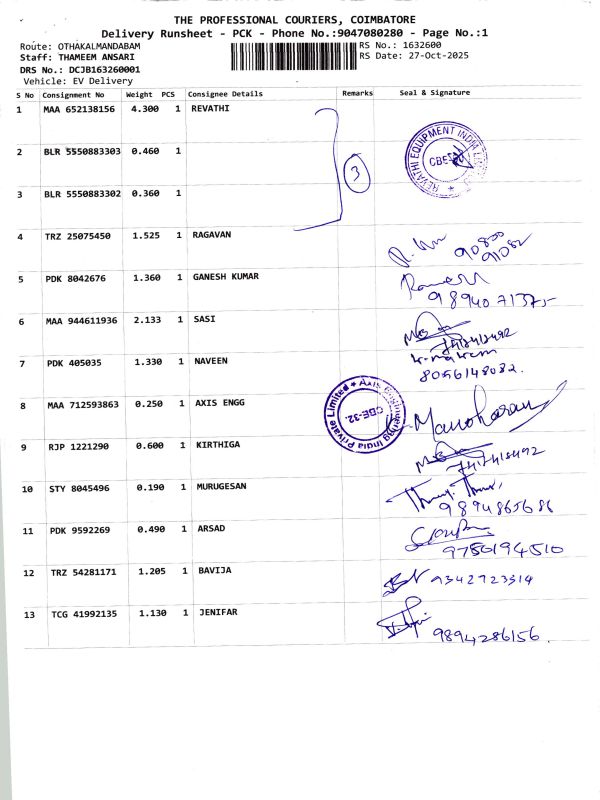 THE PROFESSIONAL COURIERS, COIMBATORE
Delivery Runsheet - PCK - Phone No.:9047080280 - Page No.:1
Route: OTHAKALMANDABAM RS No.: 1632600
Staff: THAMEEM ANSARI RS Date: 27-Oct-2025
DRS No.: DCJB163260001
Vehicle: EV Delivery
S No Consignment No Weight PCS Consignee Details Remarks Seal & Signature
1 MAA 652138156 4.300 1 REVATHI
2 BLR 5550883303 0.460 1
REVATHI EQUIPMENT INDIA
CBE
3
3 BLR 5550883302 0.360 1
4 TRZ 25075450 1.525 1 RAGAVAN
5 PDK 8042676 1.360 1 GANESH KUMAR
6 MAA 944611936 2.133 1 SASI
7 PDK 405035 1.330 1 NAVEEN
8056148082.
8 MAA 712593863 0.250 1 AXIS ENGG
Axis Engineering India Private Limited
CBE-32.
Manoharan
9 RJP 1221290 0.600 1 KIRTHIGA
10 STY 8045496 0.190 1 MURUGESAN
9894865686
11 PDK 9592269 0.490 1 ARSAD
9750194510
12 TRZ 54281171 1.205 1 BAVIJA
9342723314
13 TCG 41992135 1.130 1 JENIFAR
9894286156.